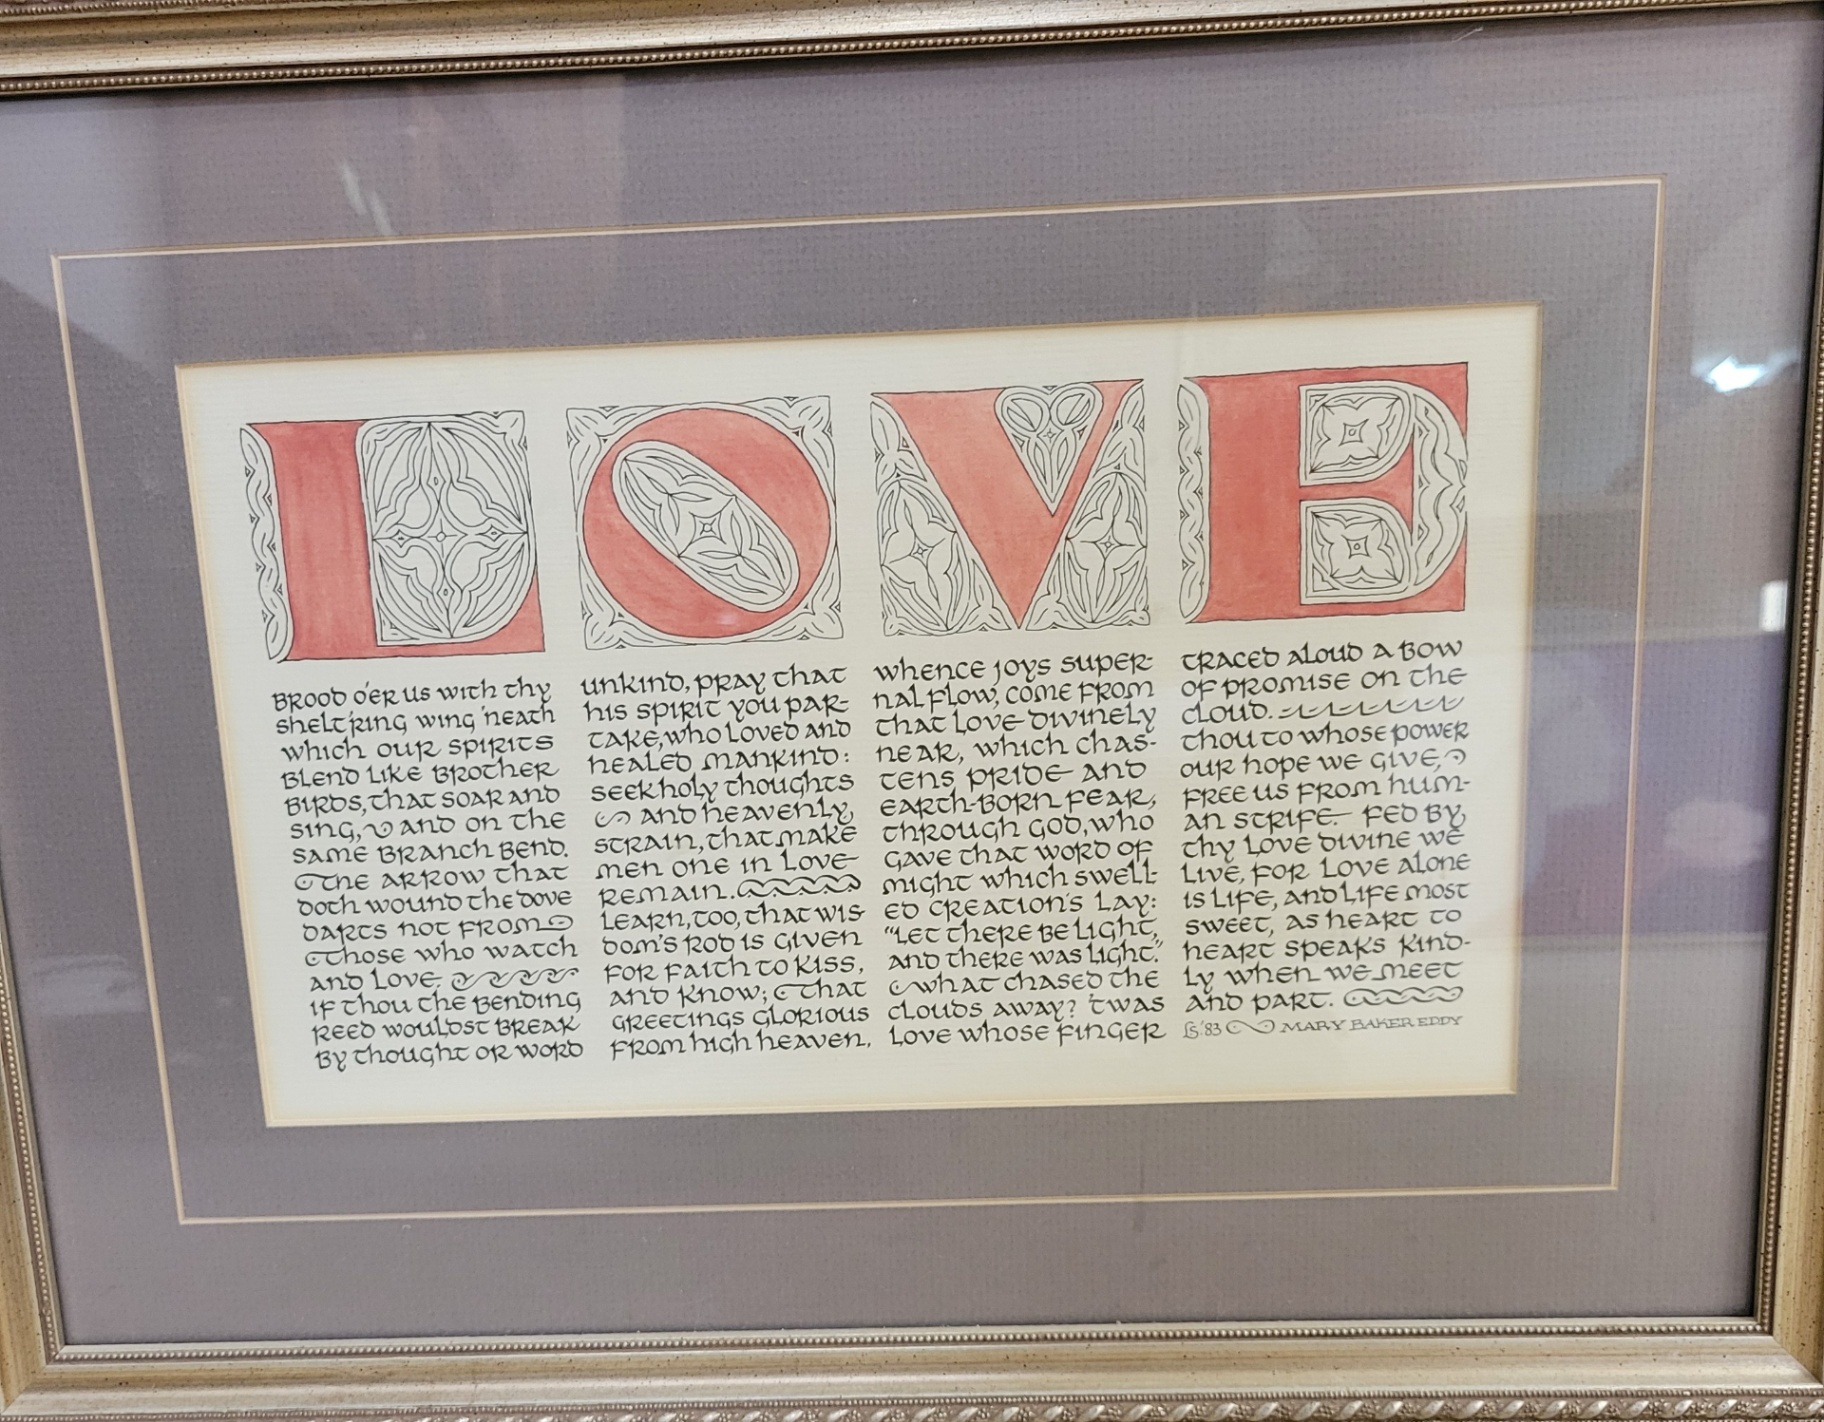 LOVE
Brood o'er us with thy
shelt'ring wing 'neath
which our spirits
blend like brother
birds, that soar and
sing, and on the
same branch bend.
The arrow that
doth wound the dove
darts not from
those who watch
and love.
If thou the bending
reed wouldst break
by thought or word
unkind, pray that
his spirit you par-
take, who loved and
healed mankind:
seek holy thoughts
and heavenly
strain, that make
men one in love
remain.
Learn, too, that wis-
dom's rod is given
for faith to kiss,
and know; that
greetings glorious
from high heaven,
whence joys super-
nal flow, come from
that Love divinely
near, which chas-
tens pride and
earth-born fear,
through God, who
gave that word of
might which swell-
ed creation's lay:
"Let there be light,
and there was light."
What chased the
clouds away? 'twas
Love whose finger
traced aloud a bow
of promise on the
cloud.
Thou to whose power
our hope we give,
free us from hum-
an strife. Fed by
thy Love divine we
live, for Love alone
is Life, and Life most
sweet, as heart to
heart speaks kind-
ly when we meet
and part.
LS '83 MARY BAKER EDDY